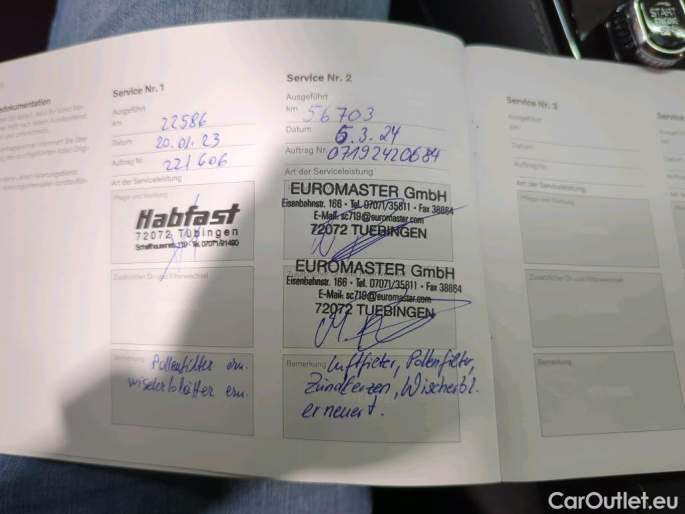 sedokumentation
Service Nr. 1
Ausgeführt
km 22586
Datum 20.01.23
Auftrag Nr. 221606
Art der Serviceleistung
Pflege und Wartung
Habfast
72072 Tübingen
Tel. 07071/91490
Zusätzlicher Öl- und Filterwechsel
Bemerkung Pollenfilter ern.
wischerblätter ern.
Service Nr. 2
Ausgeführt
km 56703
Datum 5.3.24
Auftrag Nr. 07192420684
Art der Serviceleistung
EUROMASTER GmbH
Eisenbahnstr. 166 • Tel. 07071/35811 • Fax 38864
E-Mail: sc719@euromaster.com
72072 TUEBINGEN
EUROMASTER GmbH
Eisenbahnstr. 166 • Tel. 07071/35811 • Fax 38864
E-Mail: sc719@euromaster.com
72072 TUEBINGEN
Bemerkung Luftfilter, Pollenfilter,
Zündkerzen, Wischerbl.
erneuert.
Service Nr. 3
Ausgeführt
km
Datum
Auftrag Nr.
Art der Serviceleistung
Pflege und Wartung
Zusätzlicher Öl- und Filterwechsel
Bemerkung
START
CarOutlet.eu